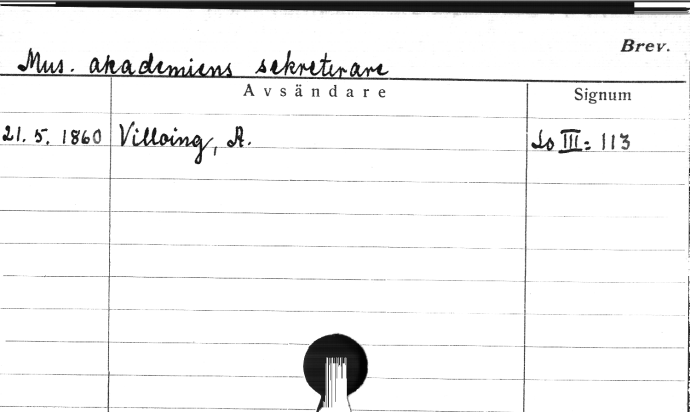 Brev.
Mus. akademiens sekreterare
Avsändare Signum
21. 5. 1860 Villoing, A. Lo III: 113